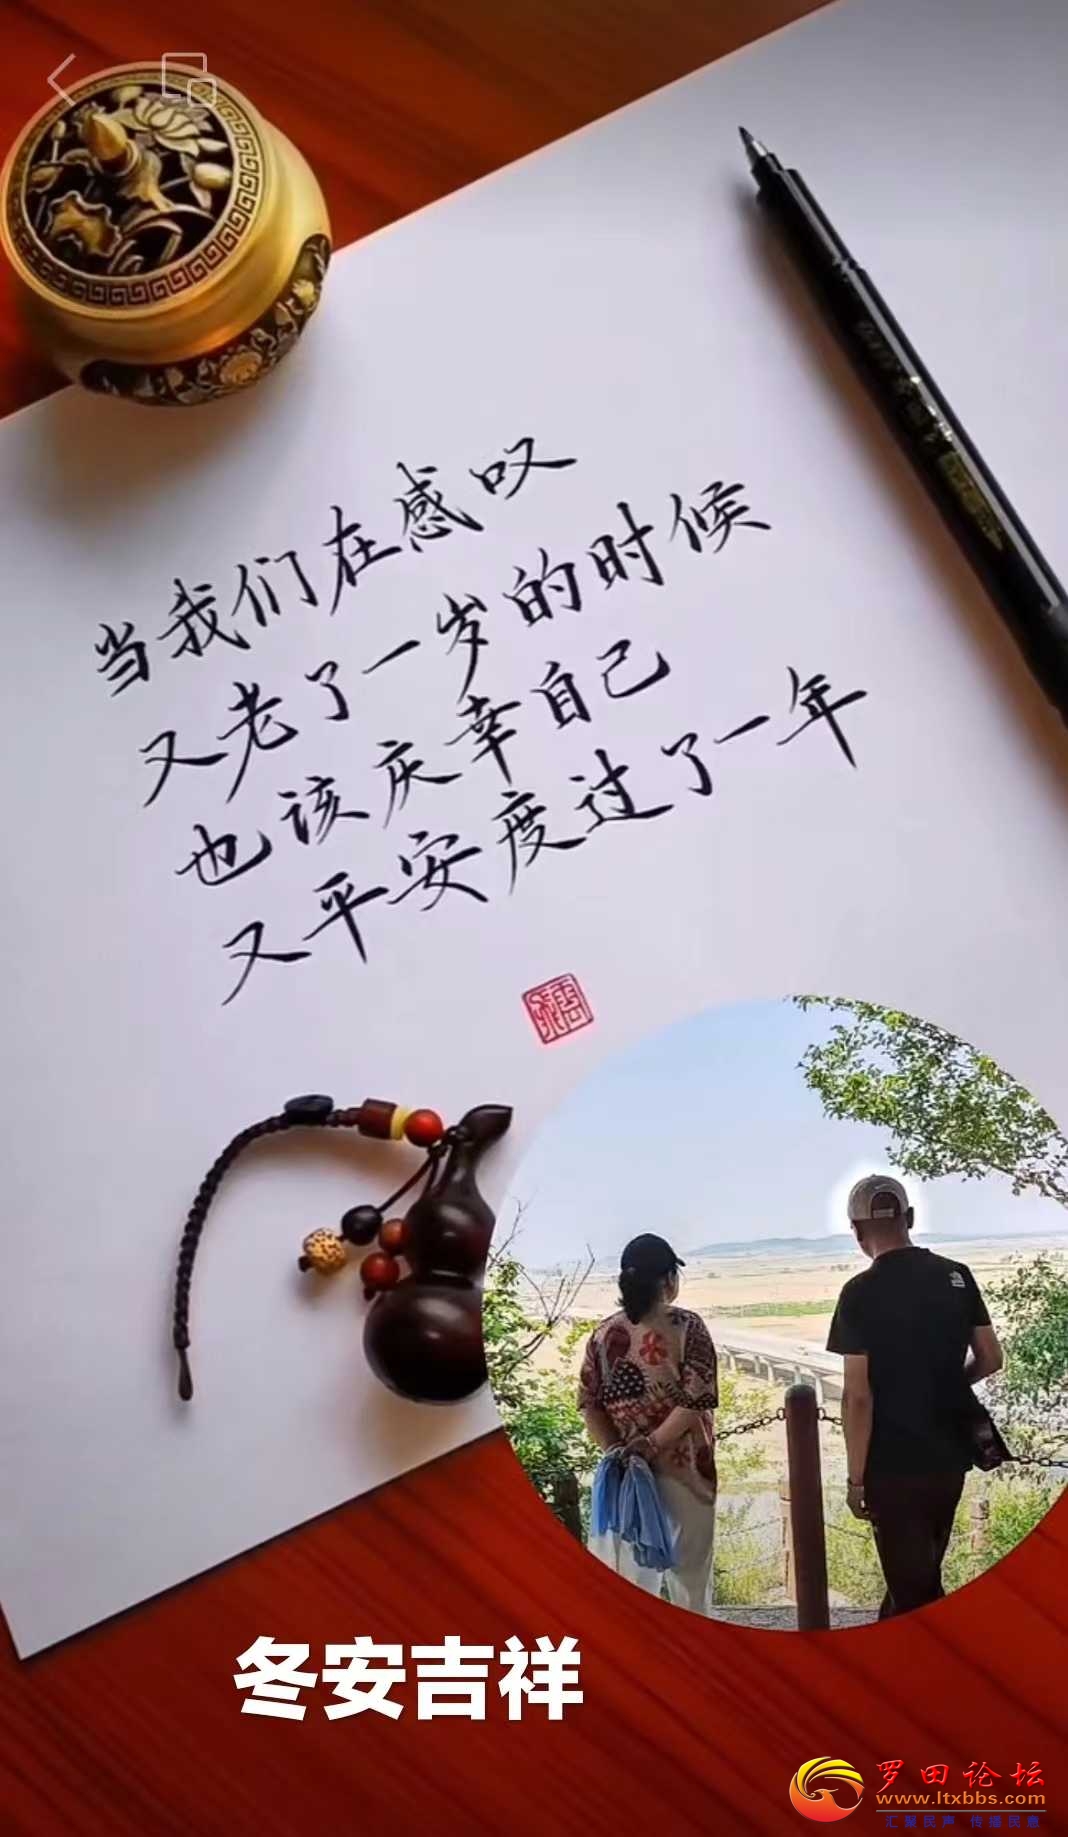 当我们在感叹
又老了一岁的时候
也该庆幸自己
又平安度过了一年
冬安吉祥
罗田论坛
www.ltxbbs.com
汇聚民声 传播民意